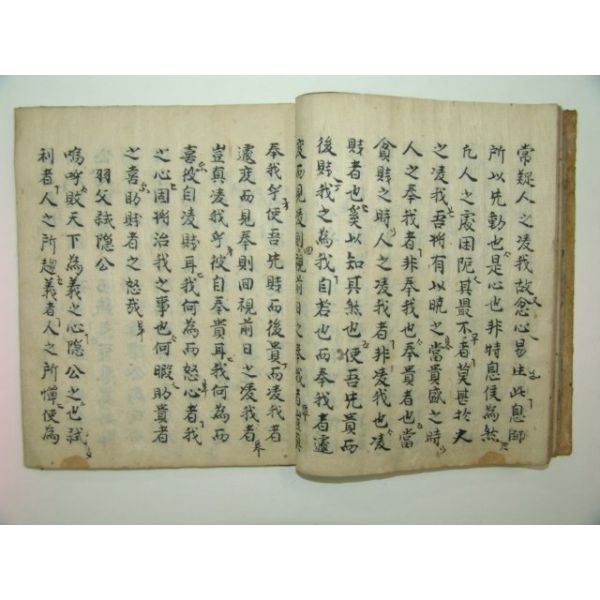 常疑人之凌我故忿心易生此息師
所以先動也是心也非特息侯爲然
凡人之處困阨其最不者莫甚於大
之凌我吾將有以曉之當貴盛之時
人之奉我者非奉我也奉貴者也當
貧賤之時人之凌我者非凌我也凌
賤者也奚以知其然也使吾先貴而
後賤我之爲我自若也而奉我者遽
變而見凌則視前日之奉我者豈眞
奉我乎使吾先賤而後貴而凌我者
遽變而見奉則回視前日之凌我者
豈眞凌我乎彼自奉貴耳我何爲而
喜彼自凌賤耳我何爲而怒心者我
之心固將治我之事也何暇助貴者
之喜助賤者之怒哉
公羽父弑隱公
嗚呼敗天下爲義之心隱公之也弑
利者人之所趨義者人之所憚使爲